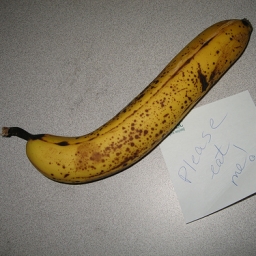 Please
eat
me!